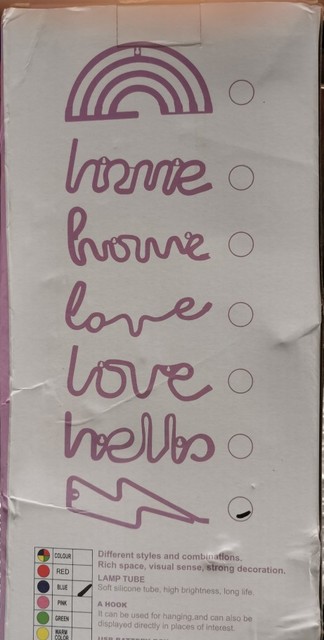 home
home
love
love
hello
COLOUR
RED
BLUE
PINK
GREEN
WARM COLOR
Different styles and combinations.
Rich space, visual sense, strong decoration.
LAMP TUBE
Soft silicone tube, high brightness, long life.
A HOOK
It can be used for hanging.and can also be
displayed directly in places of interest.